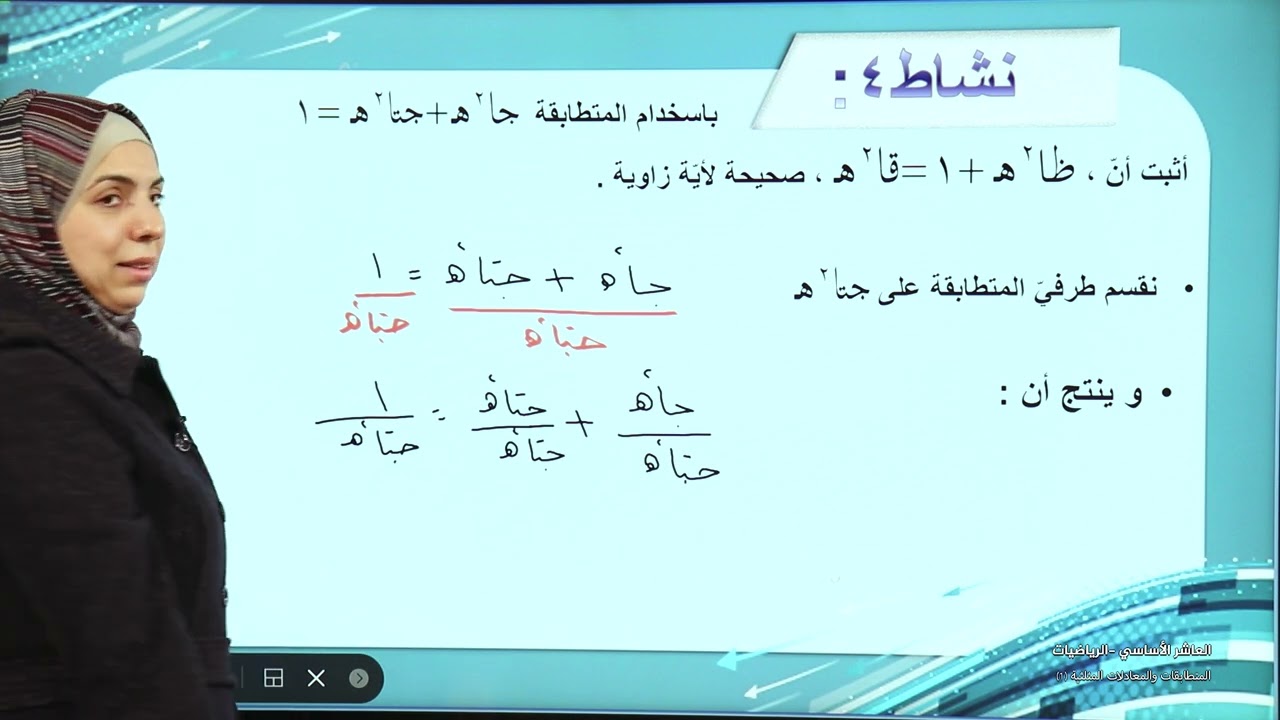 نشاط ٤ :
باسخدام المتطابقة جا٢ هـ + جتا٢ هـ = ١
أثبت أنّ ، ظا٢ هـ + ١ = قا٢ هـ ، صحيحة لأيّة زاوية .
• نقسم طرفيّ المتطابقة على جتا٢ هـ
جا٢ هـ + جتا٢ هـ = ١
جتا٢ هـ جتا٢ هـ
• و ينتج أن :
جا٢ هـ + جتا٢ هـ = ١
جتا٢ هـ جتا٢ هـ جتا٢ هـ
العاشر الأساسي -الرياضيات
المتطابقات والمعادلات المثلثية (٢)